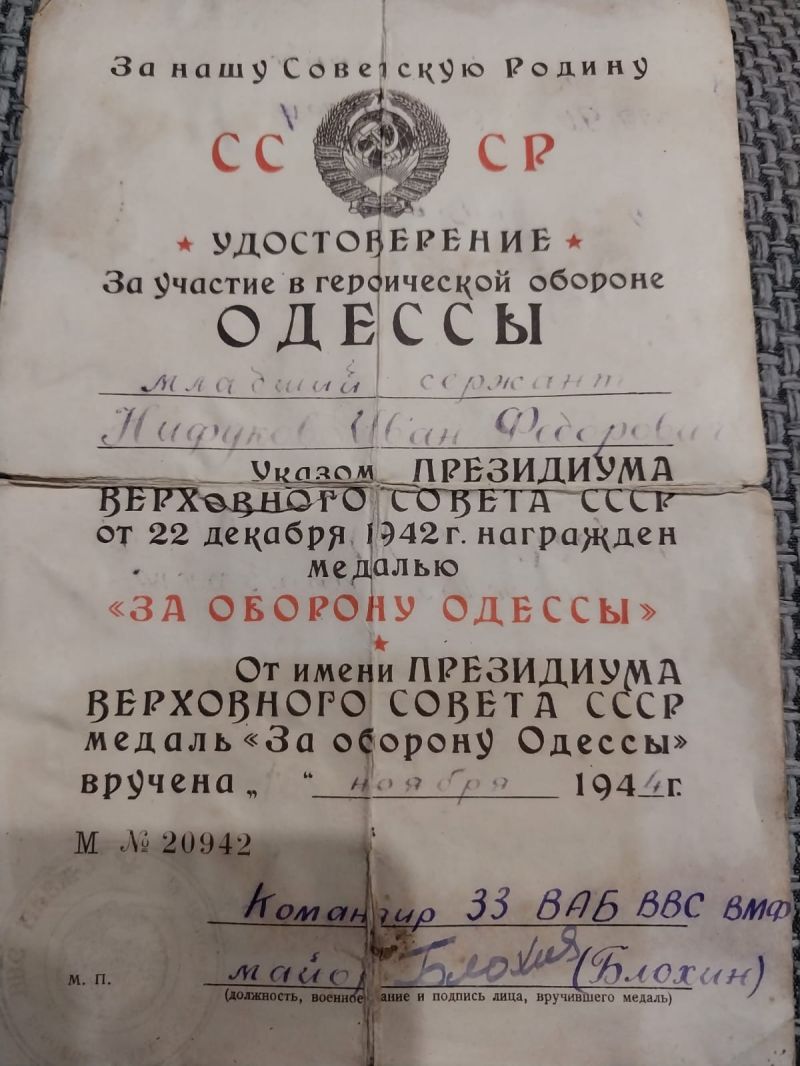 За нашу Советскую Родину
СССР
УДОСТОВЕРЕНИЕ
За участие в героической обороне
ОДЕССЫ
младший сержант
Нифуков Иван Федорович
Указом ПРЕЗИДИУМА
ВЕРХОВНОГО СОВЕТА СССР
от 22 декабря 1942 г. награжден
медалью
«ЗА ОБОРОНУ ОДЕССЫ»
От имени ПРЕЗИДИУМА
ВЕРХОВНОГО СОВЕТА СССР
медаль «За оборону Одессы»
вручена „ “ ноября 1944 г.
М № 20942
Командир 33 ВАБ ВВС ВМФ
майор Блохин (Блохин)
м. п.
(должность, военное звание и подпись лица, вручившего медаль)